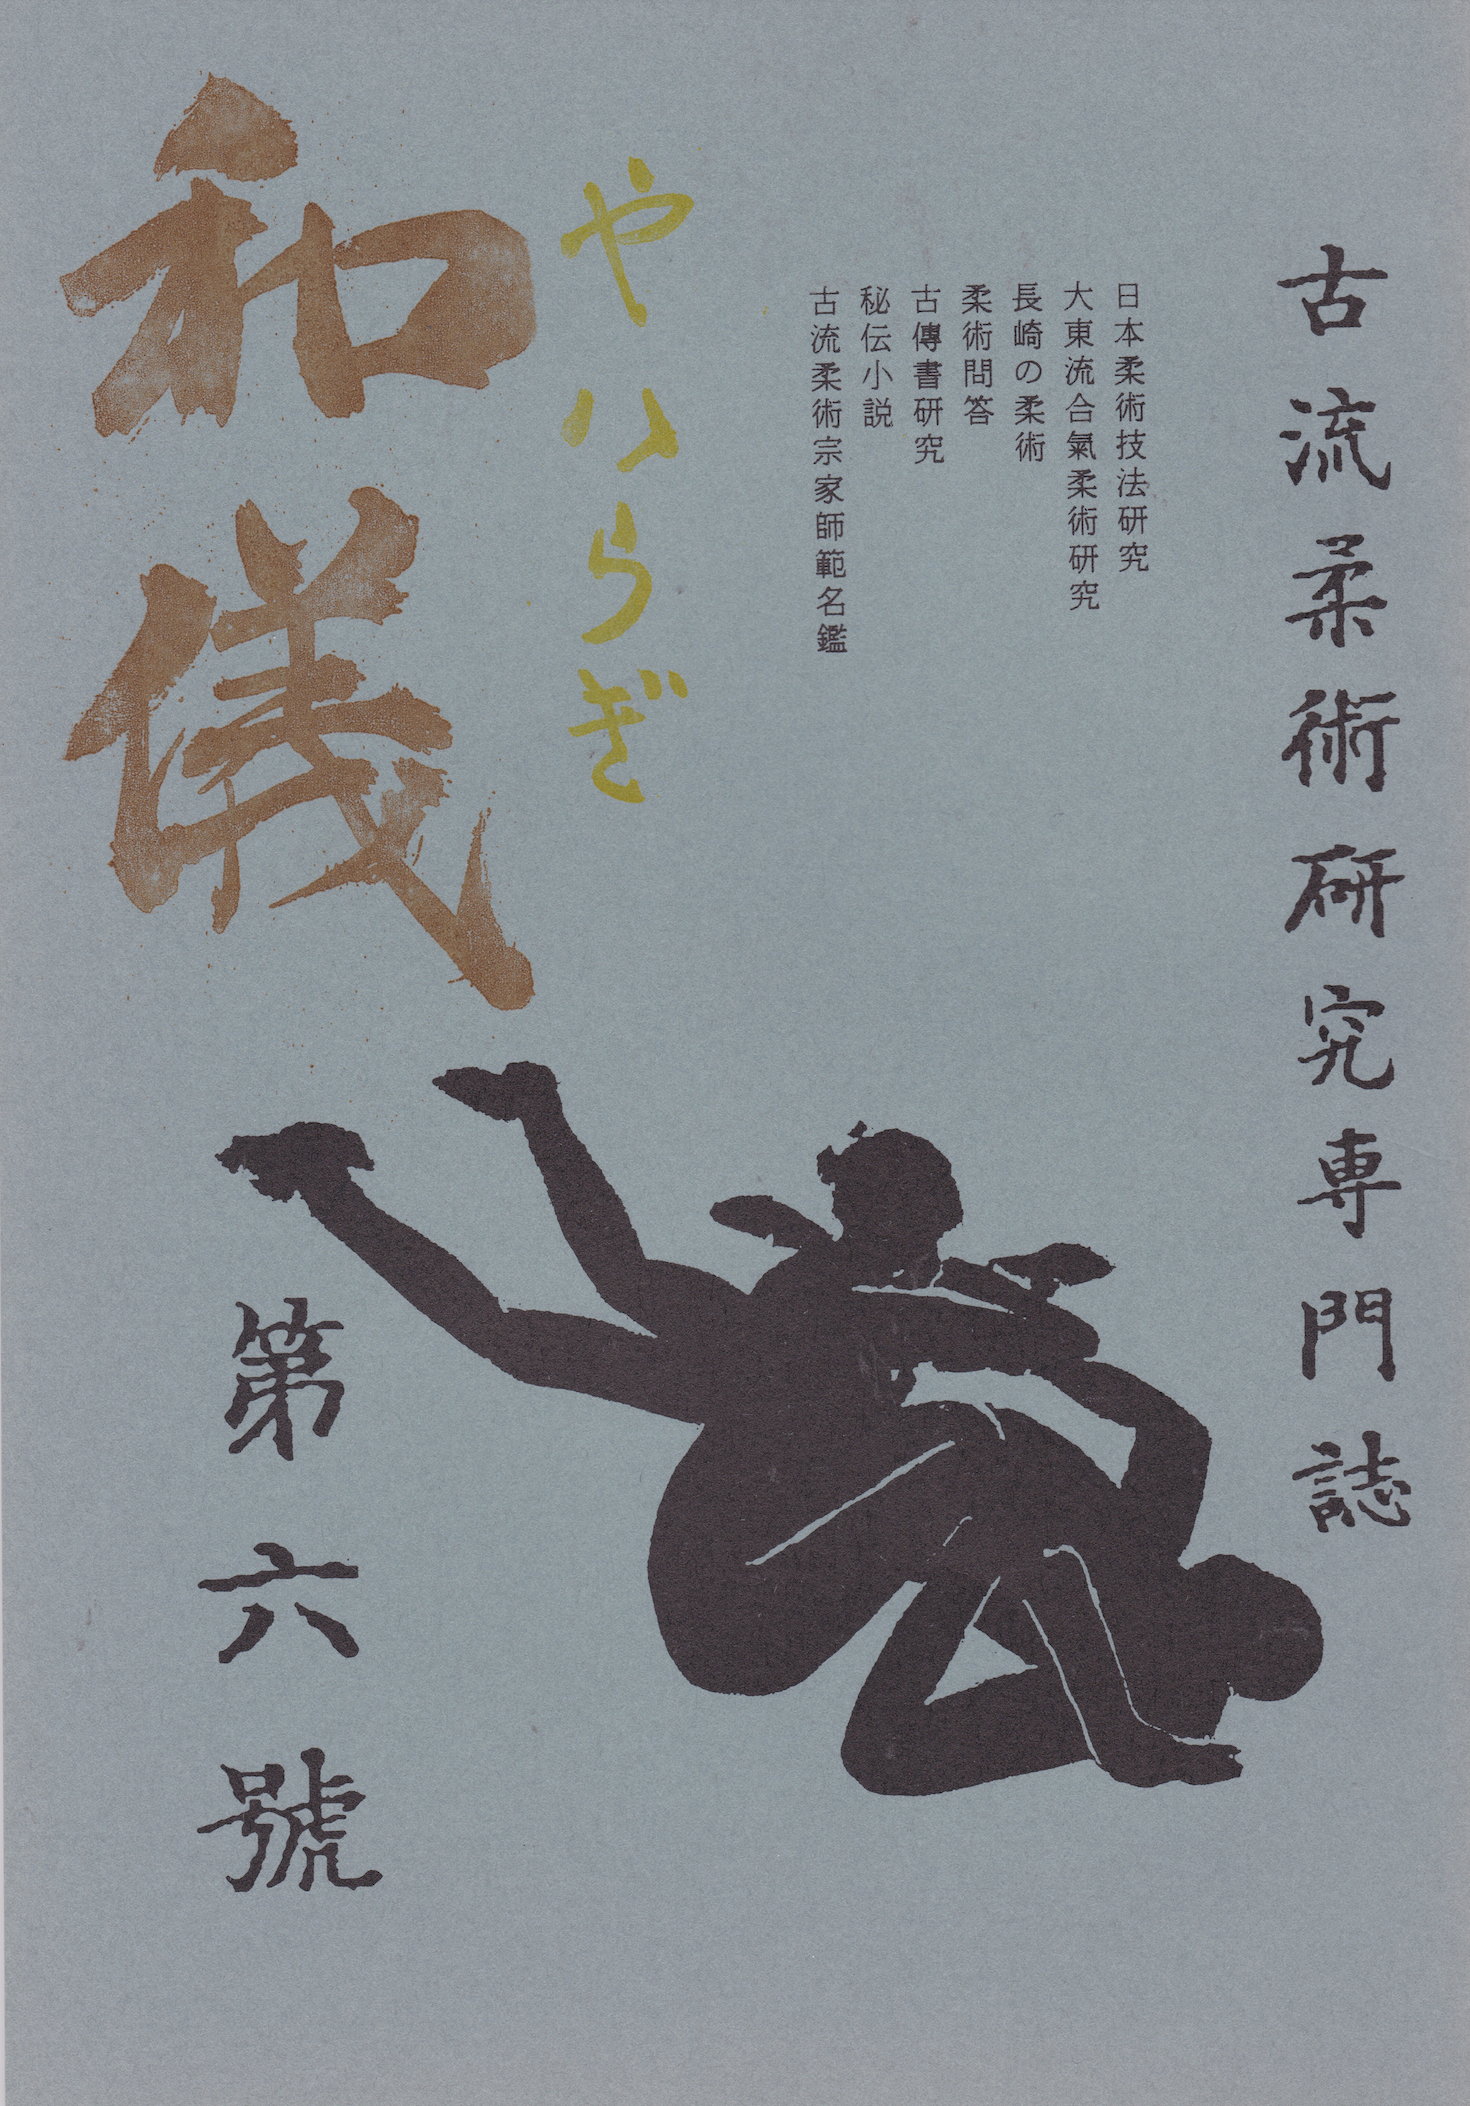 古流柔術研究専門誌
日本柔術技法研究
大東流合氣柔術研究
長崎の柔術
柔術問答
古傳書研究
秘伝小説
古流柔術宗家師範名鑑
やハらぎ
和儀
第六號